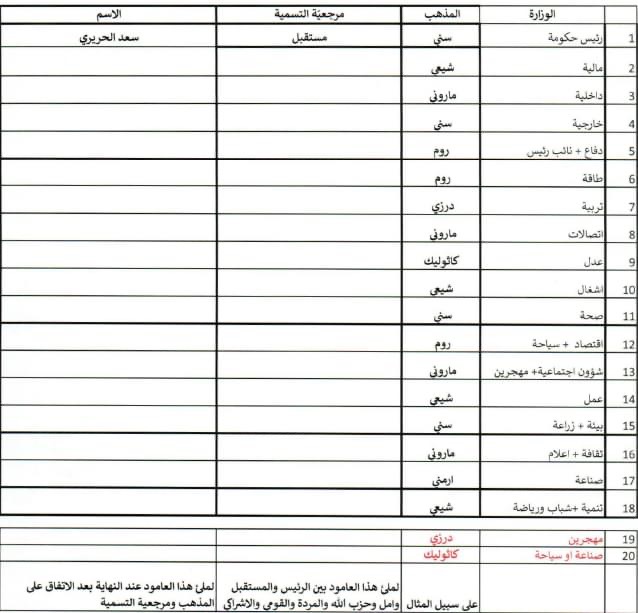 الوزارة المذهب مرجعيّة التسمية الاسم
1 رئيس حكومة سني مستقبل سعد الحريري
2 مالية شيعي
3 داخلية ماروني
4 خارجية سني
5 دفاع + نائب رئيس روم
6 طاقة روم
7 تربية درزي
8 اتصالات ماروني
9 عدل كاثوليك
10 اشغال شيعي
11 صحة سني
12 اقتصاد + سياحة روم
13 شؤون اجتماعية+ مهجرين ماروني
14 عمل شيعي
15 بيئة + زراعة سني
16 ثقافة + اعلام ماروني
17 صناعة ارمني
18 تنمية +شباب ورياضة شيعي
19 مهجرين درزي
20 صناعة او سياحة كاثوليك
على سبيل المثال
لملئ هذا العامود بين الرئيس والمستقبل
وامل وحزب الله والمردة والقومي والاشراكي
لملئ هذا العامود عند النهاية بعد الاتفاق على
المذهب ومرجعية التسمية